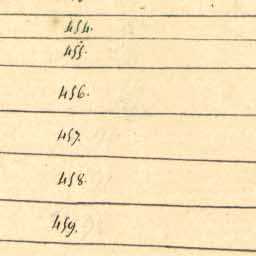 454.
455.
456.
457.
458.
459.